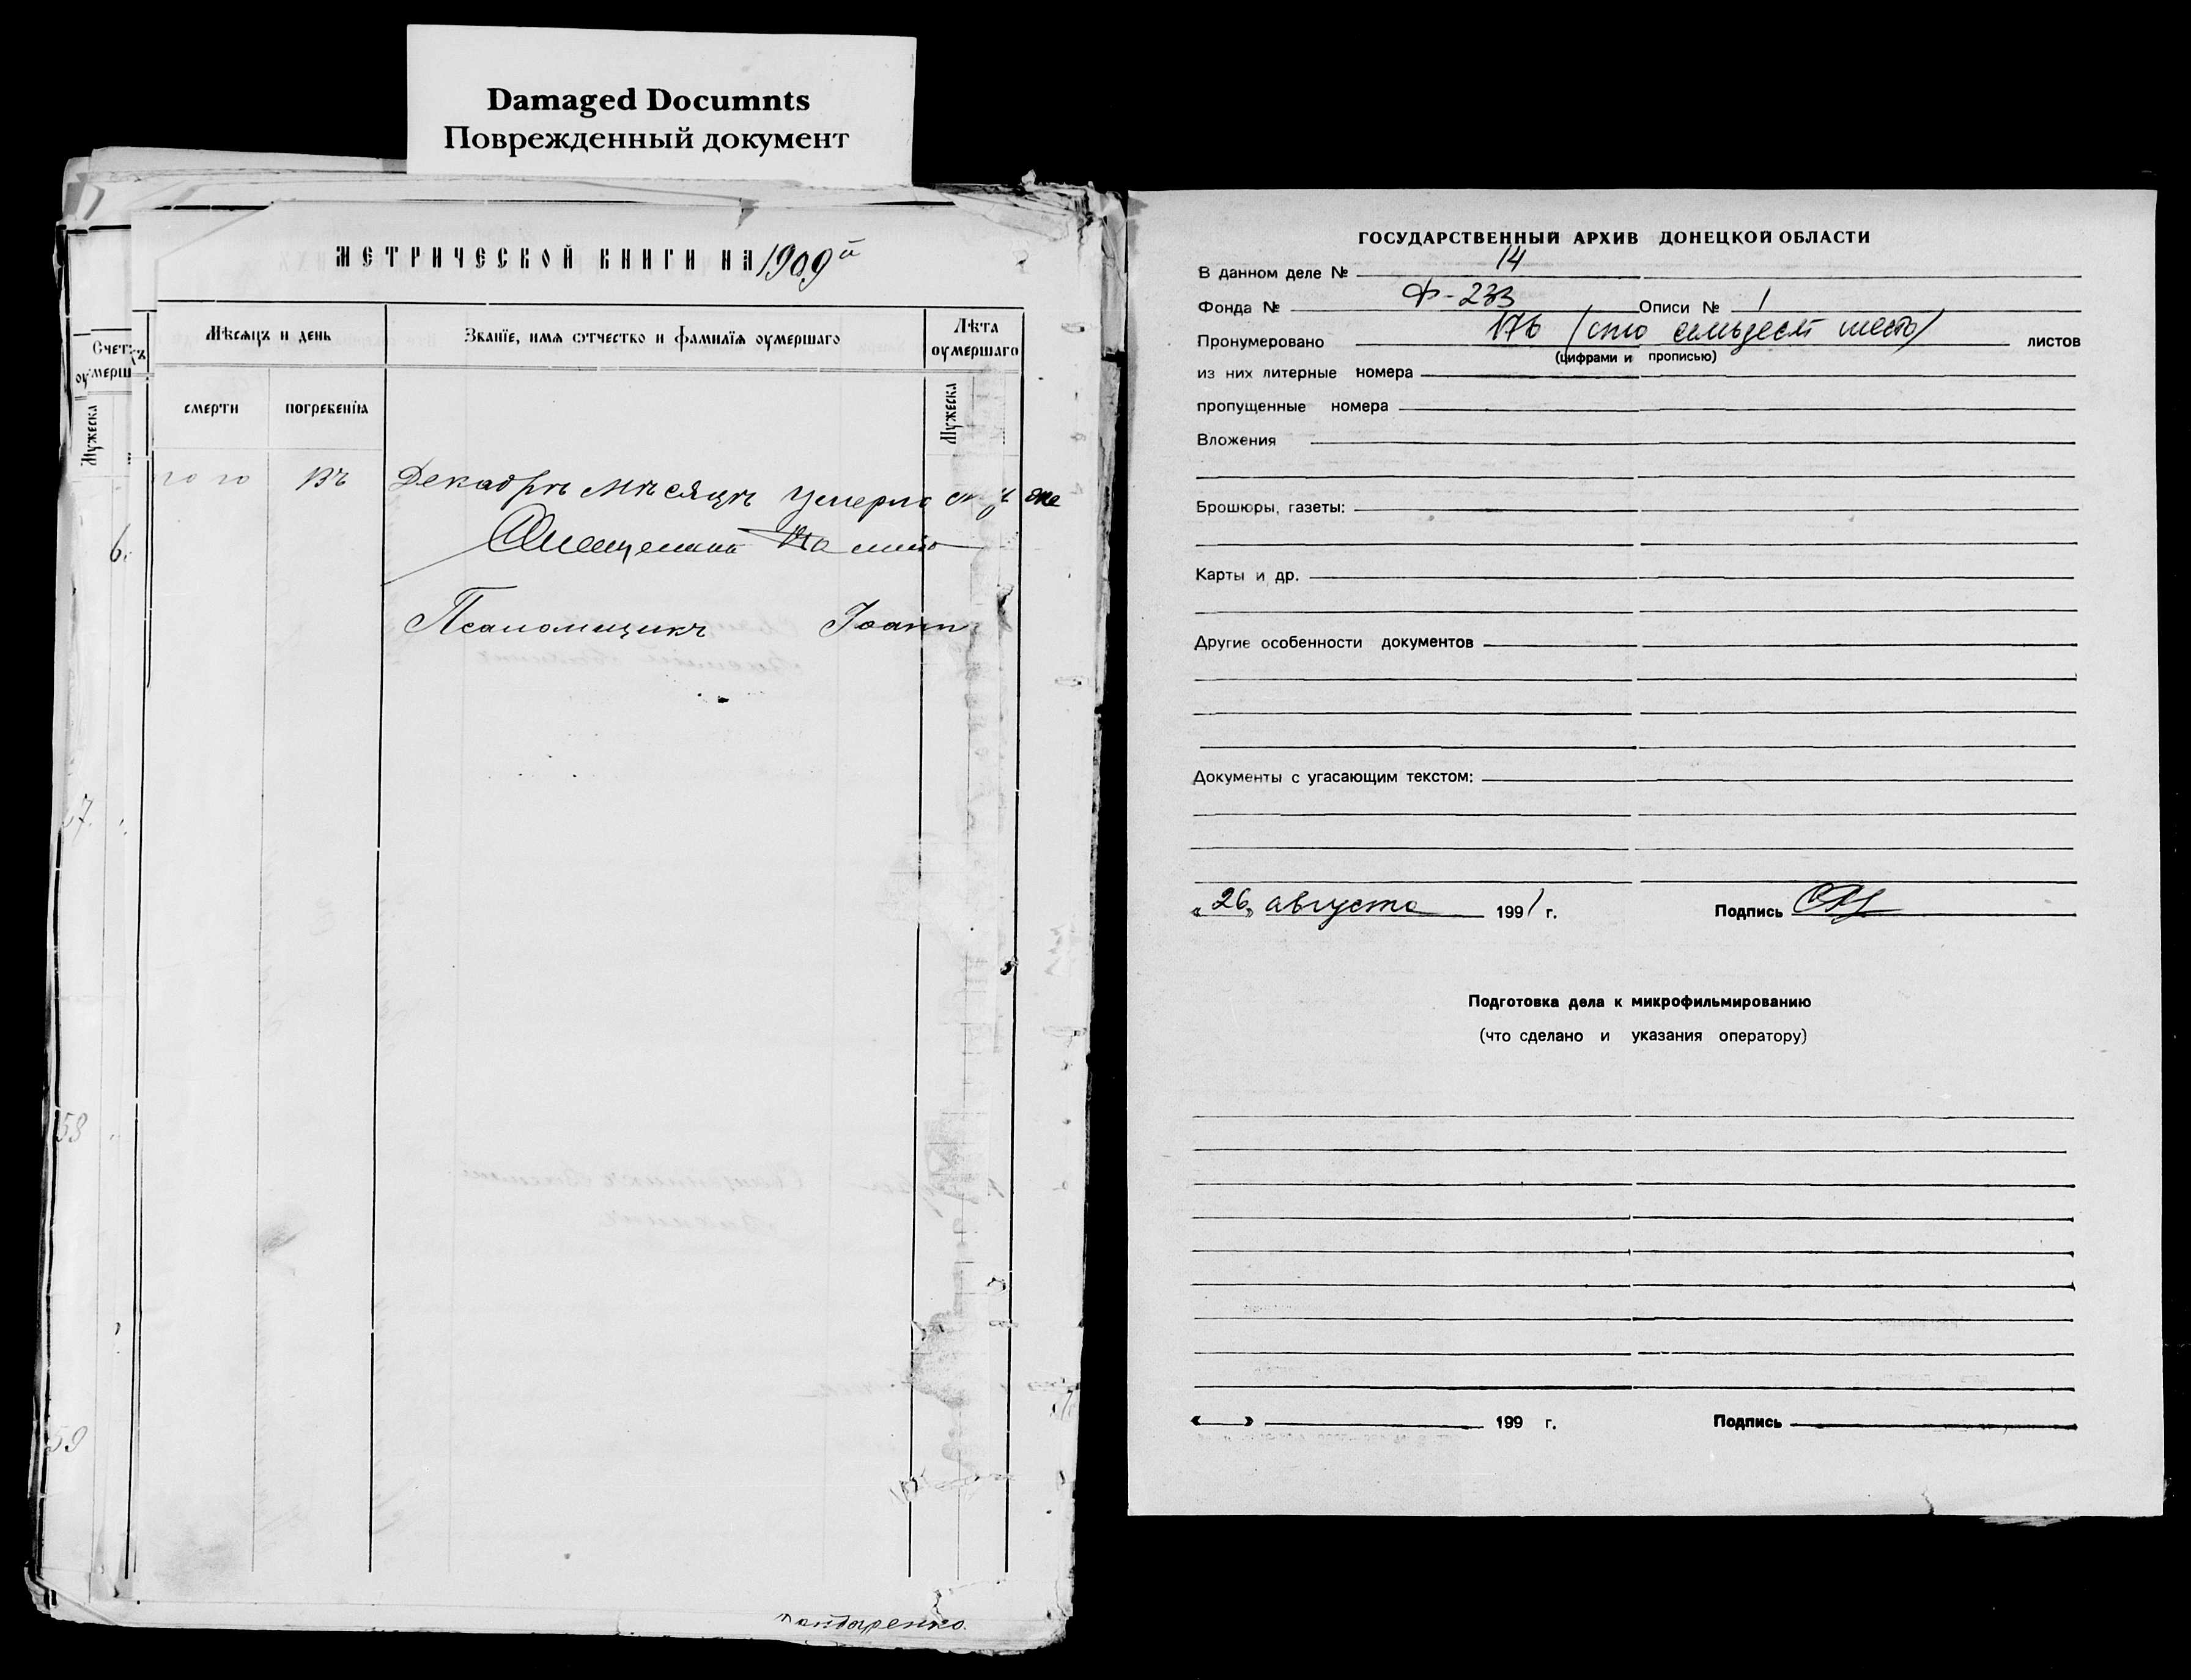 Damaged Documnts
Поврежденный документ
МЕТРИЧЕСКОЙ КНИГИ НА 1909й
Счетъ
Мѣсяцъ и день
Званїе, имя отчество и фамилїя оумершаго
Лѣта
оумершаго
Мужеска
смерти
погребенїя
Мужеска
Въ Декабрѣ мѣсяцѣ умерло
Священникъ
Псаломщикъ Іоанн
57.
58
59
ГОСУДАРСТВЕННЫЙ АРХИВ ДОНЕЦКОЙ ОБЛАСТИ
В данном деле № 14
Фонда № Ф-233 Описи № 1
Пронумеровано 176 (сто семьдесят шесть) листов
(цифрами и прописью)
из них литерные номера
пропущенные номера
Вложения
Брошюры, газеты:
Карты и др.
Другие особенности документов
Документы с угасающим текстом:
«26» августа 1991 г. Подпись
Подготовка дела к микрофильмированию
(что сделано и указания оператору)
« » 199 г. Подпись